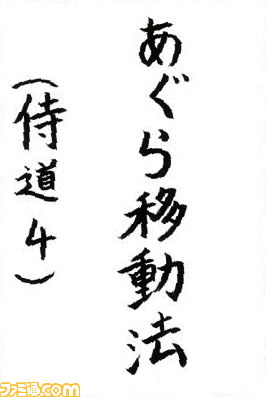 あぐら移動法
(侍道4)
ファミ通.com